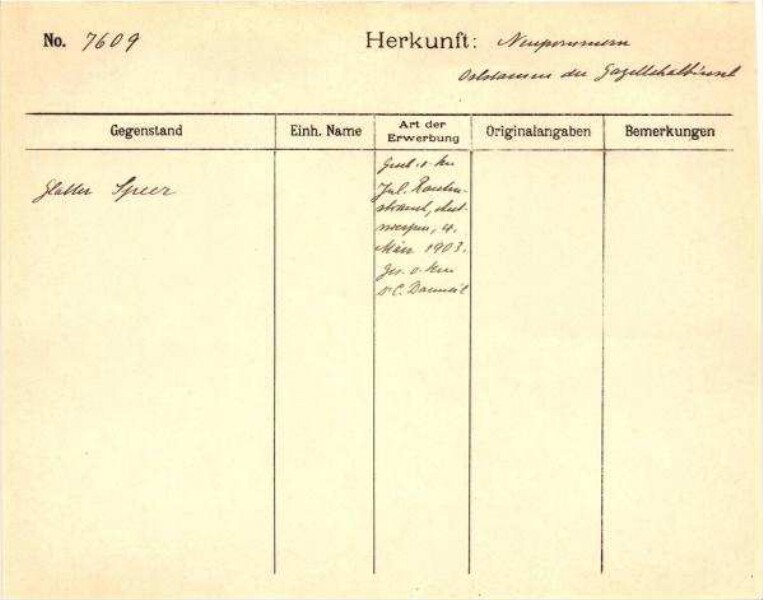 No. 7609
Herkunft: Neupommern
der Gazellehalbinsel
Gegenstand
Einh. Name
Art der Erwerbung
Originalangaben
Bemerkungen
Glatter Speer
Gesch. v. Hrn
Jul. Rauten-
strauch, Ant-
werpen, 4.
März 1903.
Ges. v. Hrn
Dr C. Damm